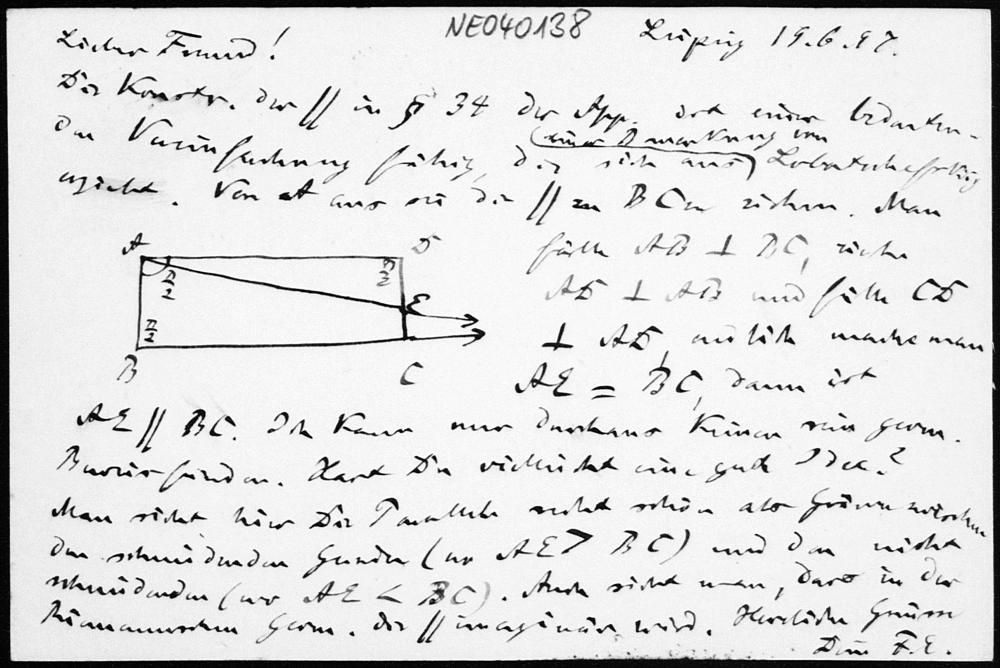 NE040138
Lieber Freund! Leipzig 19.6.97.
Die Konstr. der // in § 34 der App. ist einer bedeuten-
den Vereinfachung fähig, die sich aus (einer Bemerkung von) Lobatschefskij
ergiebt. Von A aus sei die // zu BC zu ziehen. Man
fälle AB ⊥ BC, ziehe
AD ⊥ AB und fälle CD
⊥ AD, endlich mache man
AE = BC, dann ist
A D E B C
π/2 π/2 π/2
AE // BC. Ich kann nur durchaus keinen rein geom.
Beweis finden. Hast Du vielleicht eine gute Idee?
Man sieht hier die Parallele recht schön als Grenze zwischen
den schneidenden Geraden (wo AE > BC) und den nicht
schneidenden (wo AE < BC). Auch sieht man, dass in der
Riemannschen Geom. die // imaginär wird. Herzliche Grüsse
Dein F.E.